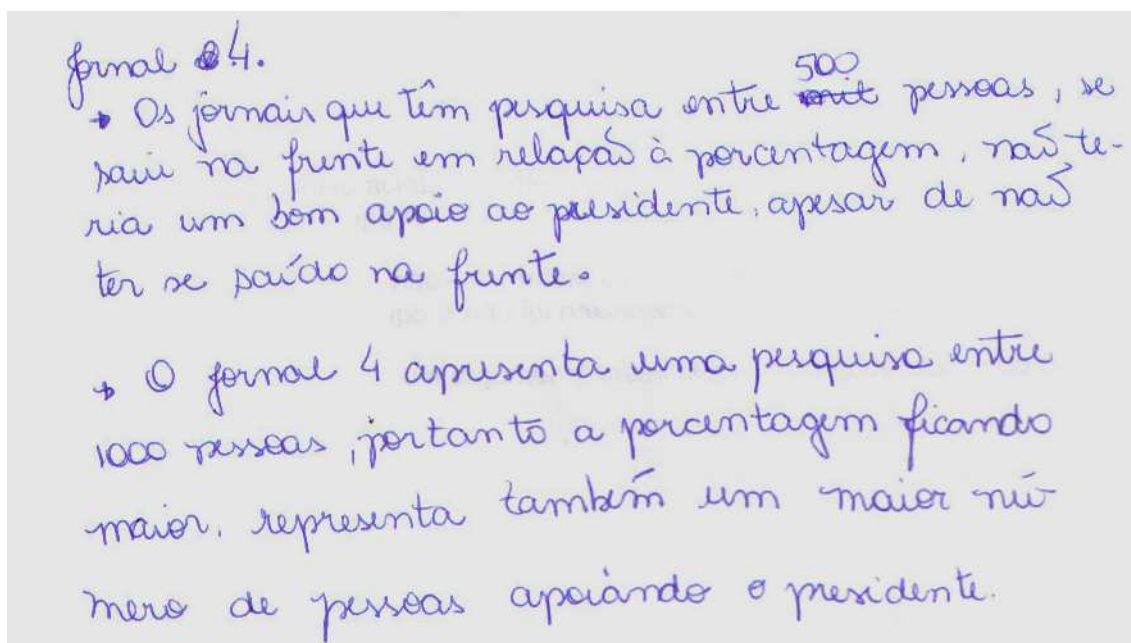 Jornal 4.
→ Os jornais que têm pesquisa entre 500 pessoas, se
saiu na frente em relação à porcentagem, não te-
ria um bom apoio ao presidente, apesar de não
ter se saído na frente.
→ O jornal 4 apresenta uma pesquisa entre
1000 pessoas, portanto a porcentagem ficando
maior, representa também um maior nú-
mero de pessoas apoiándo o presidente.